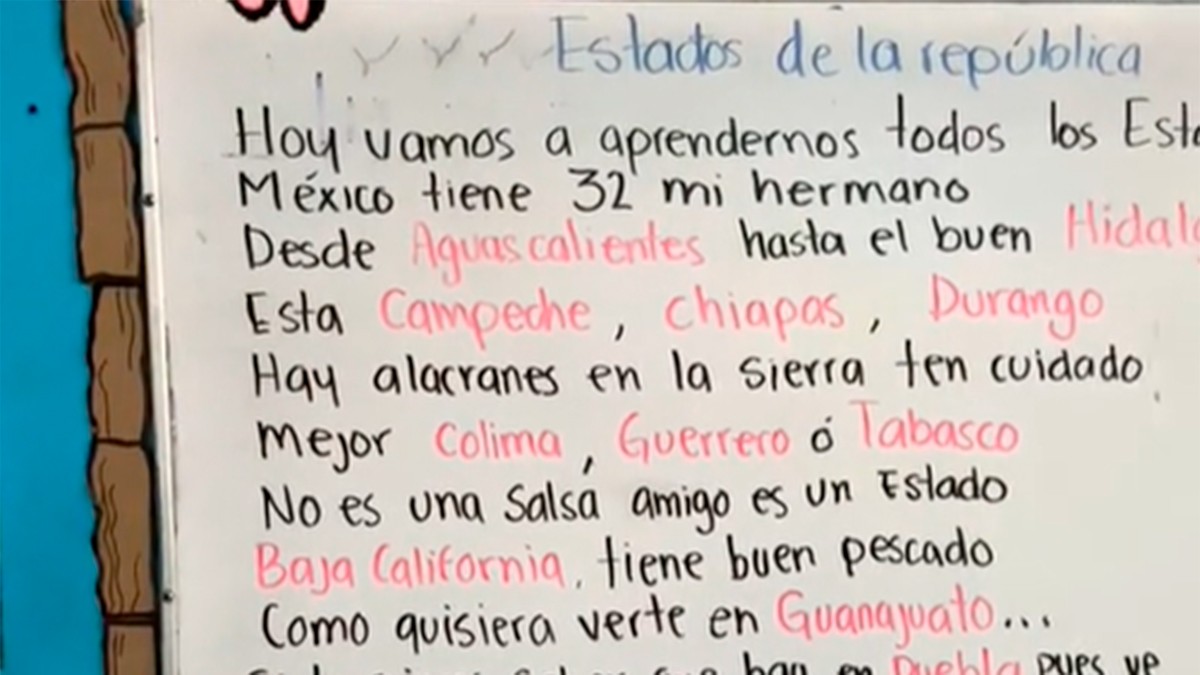 Estados de la república
Hoy vamos a aprendernos todos los Esta
México tiene 32 mi hermano
Desde Aguascalientes hasta el buen Hidalg
Esta Campeche, Chiapas, Durango
Hay alacranes en la sierra ten cuidado
Mejor Colima, Guerrero ó Tabasco
No es una Salsa amigo es un Estado
Baja California, tiene buen pescado
Como quisiera verte en Guanajuato...
que han en Puebla pues ve